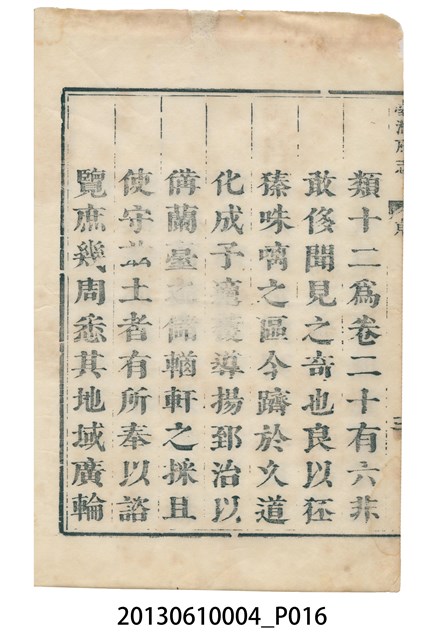 臺灣府志
類十二為卷二十有六非
敢侈聞見之奇也良以狉
獉味啁之區今躋於久道
化成予適獲導揚郅治以
備蘭臺之儲輶軒之採且
使守茲土者有所奉以諮
覽庶幾周悉其地域廣輪
20130610004_P016